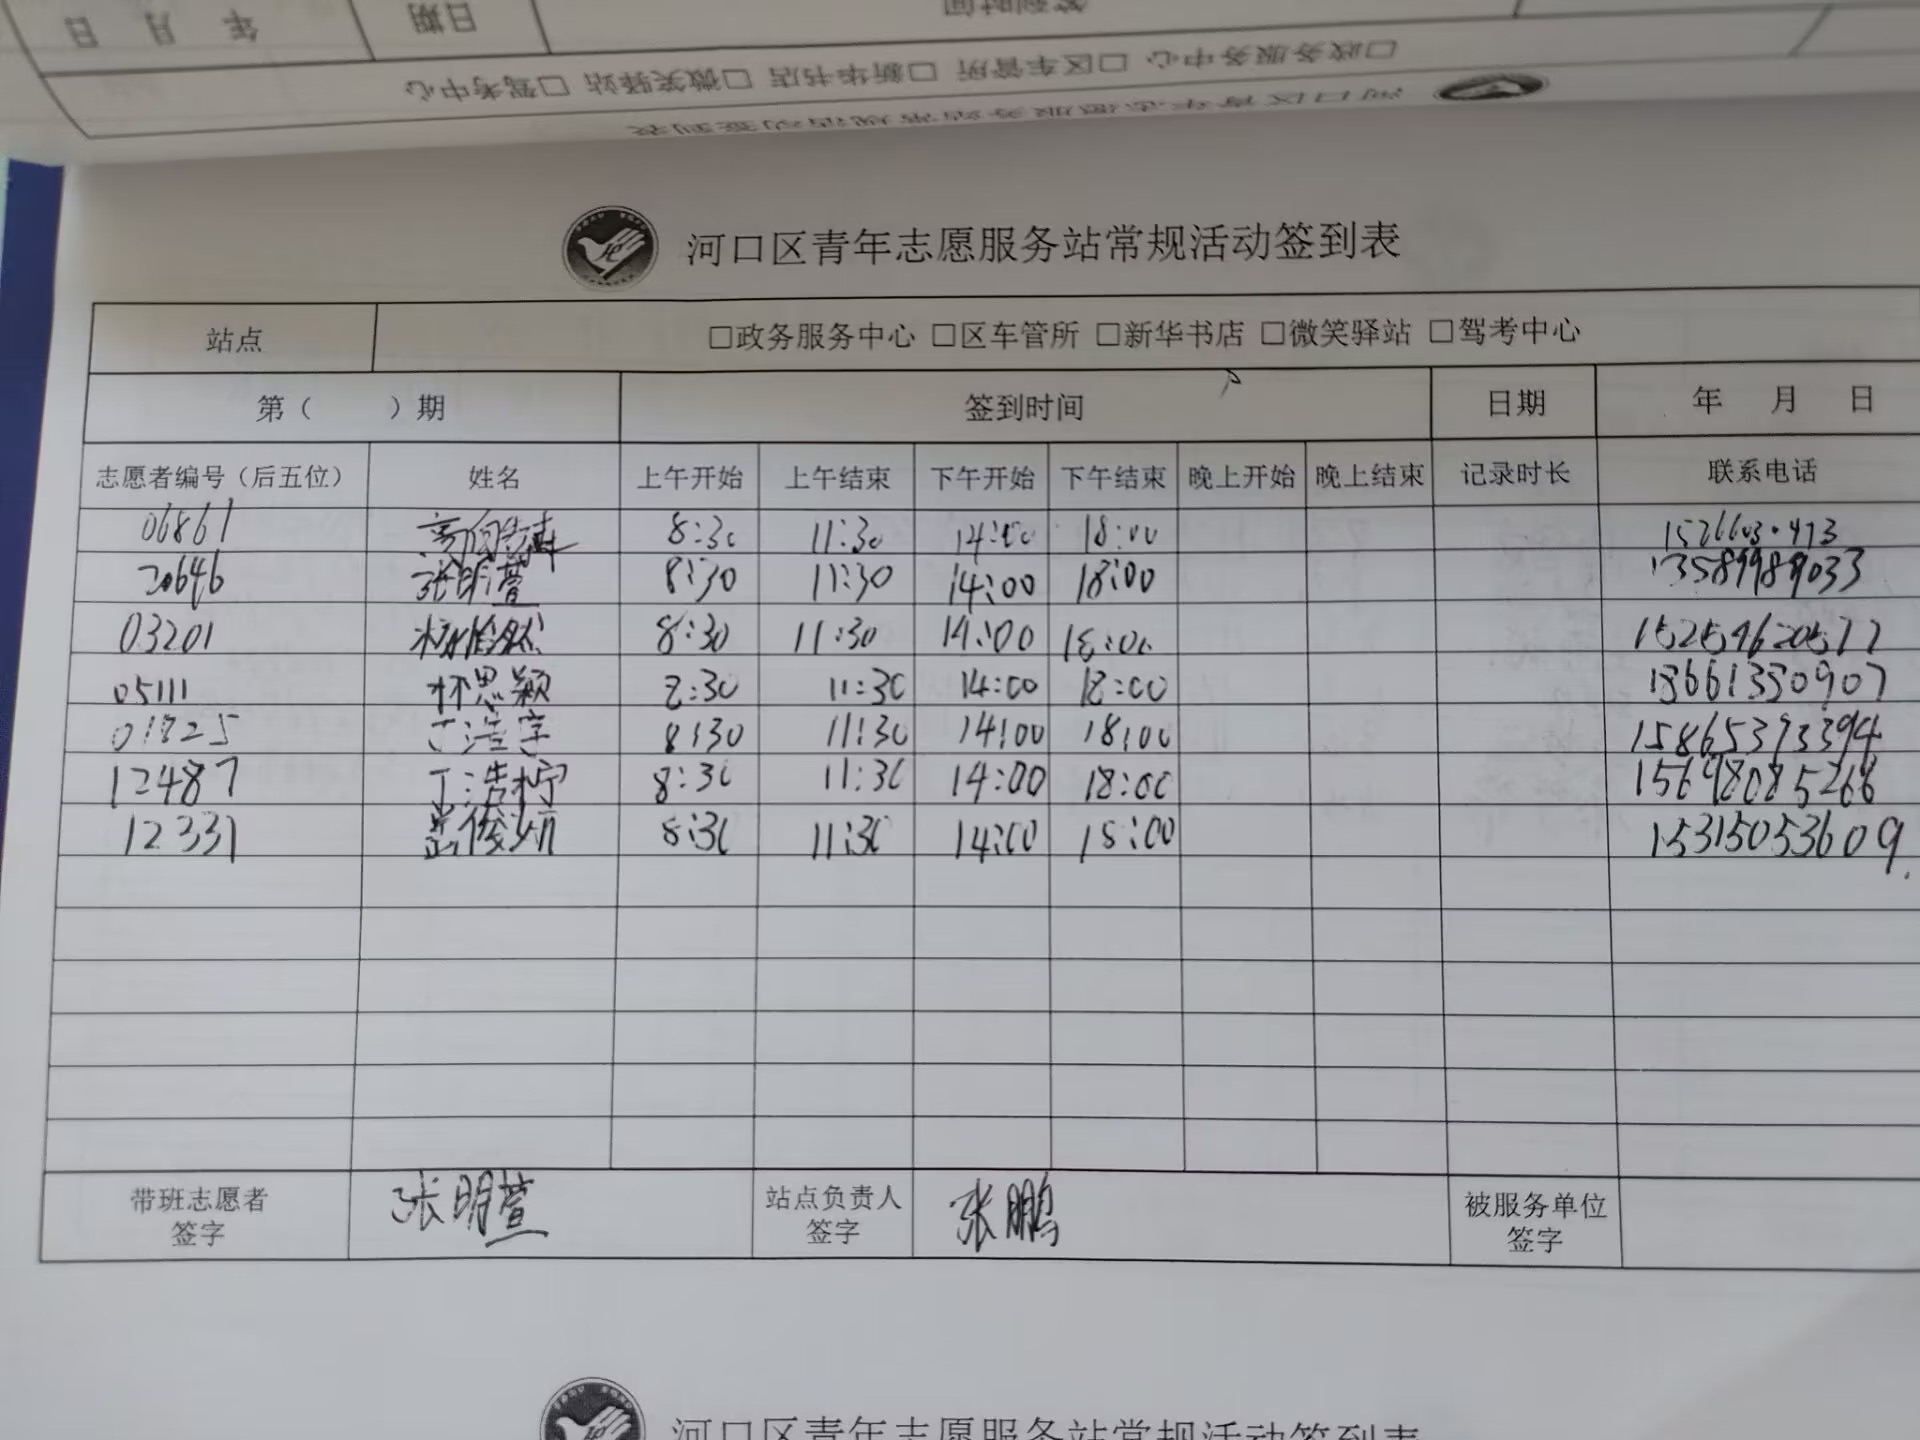 年 月 日 日期 签到时间
□政务服务中心 □区车管所 □新华书店 □微笑驿站 □驾考中心
河口区青年志愿服务站常规活动签到表
河口区青年志愿服务站常规活动签到表
站点 □政务服务中心 □区车管所 □新华书店 □微笑驿站 □驾考中心
第（ ）期 签到时间 日期 年 月 日
志愿者编号（后五位） 姓名 上午开始 上午结束 下午开始 下午结束 晚上开始 晚上结束 记录时长 联系电话
06861 8:30 11:30 14:00 18:00
20646 张明萱 8:30 11:30 14:00 18:00 13589989033
03201 8:30 11:30 14:00 18:00 15254620577
05111 林思颖 8:30 11:30 14:00 18:00 18661380907
01825 丁浩宇 8:30 11:30 14:00 18:00 15865393394
12487 丁浩柠 8:30 11:30 14:00 18:00 15698085266
12331 8:30 11:30 14:00 18:00 15315053609
带班志愿者签字 张明萱 站点负责人签字 张鹏 被服务单位签字
河口区青年志愿服务站常规活动签到表